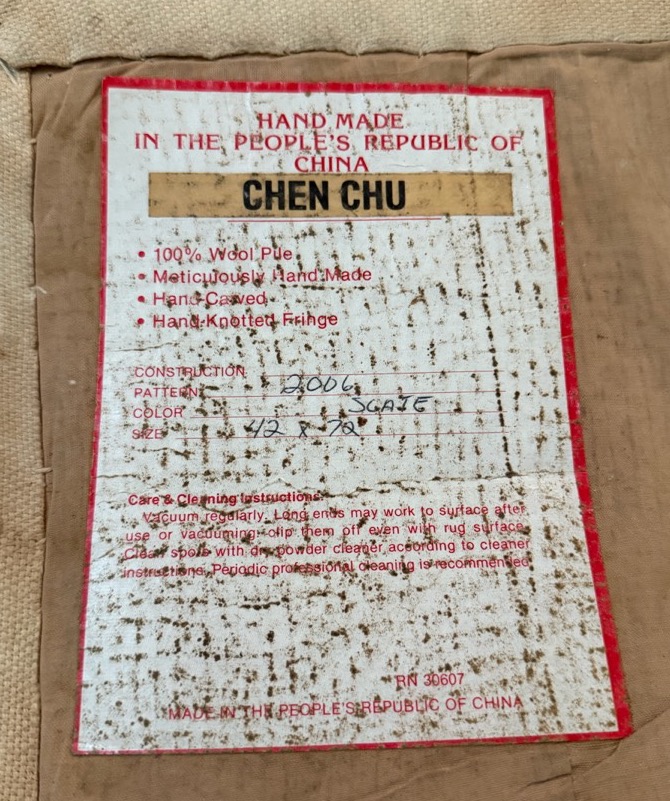 HAND MADE
IN THE PEOPLE'S REPUBLIC OF
CHINA
CHEN CHU
• 100% Wool Pile
• Meticulously Hand Made
• Hand-Carved
• Hand-Knotted Fringe
CONSTRUCTION
PATTERN 2006
COLOR SLATE
SIZE 42 x 72
Care & Cleaning Instructions:
Vacuum regularly. Long ends may work to surface after
use or vacuuming-clip them off even with rug surface.
Clean spots with dry powder cleaner according to cleaner
instructions. Periodic professional cleaning is recommended
RN 30607
MADE IN THE PEOPLE'S REPUBLIC OF CHINA